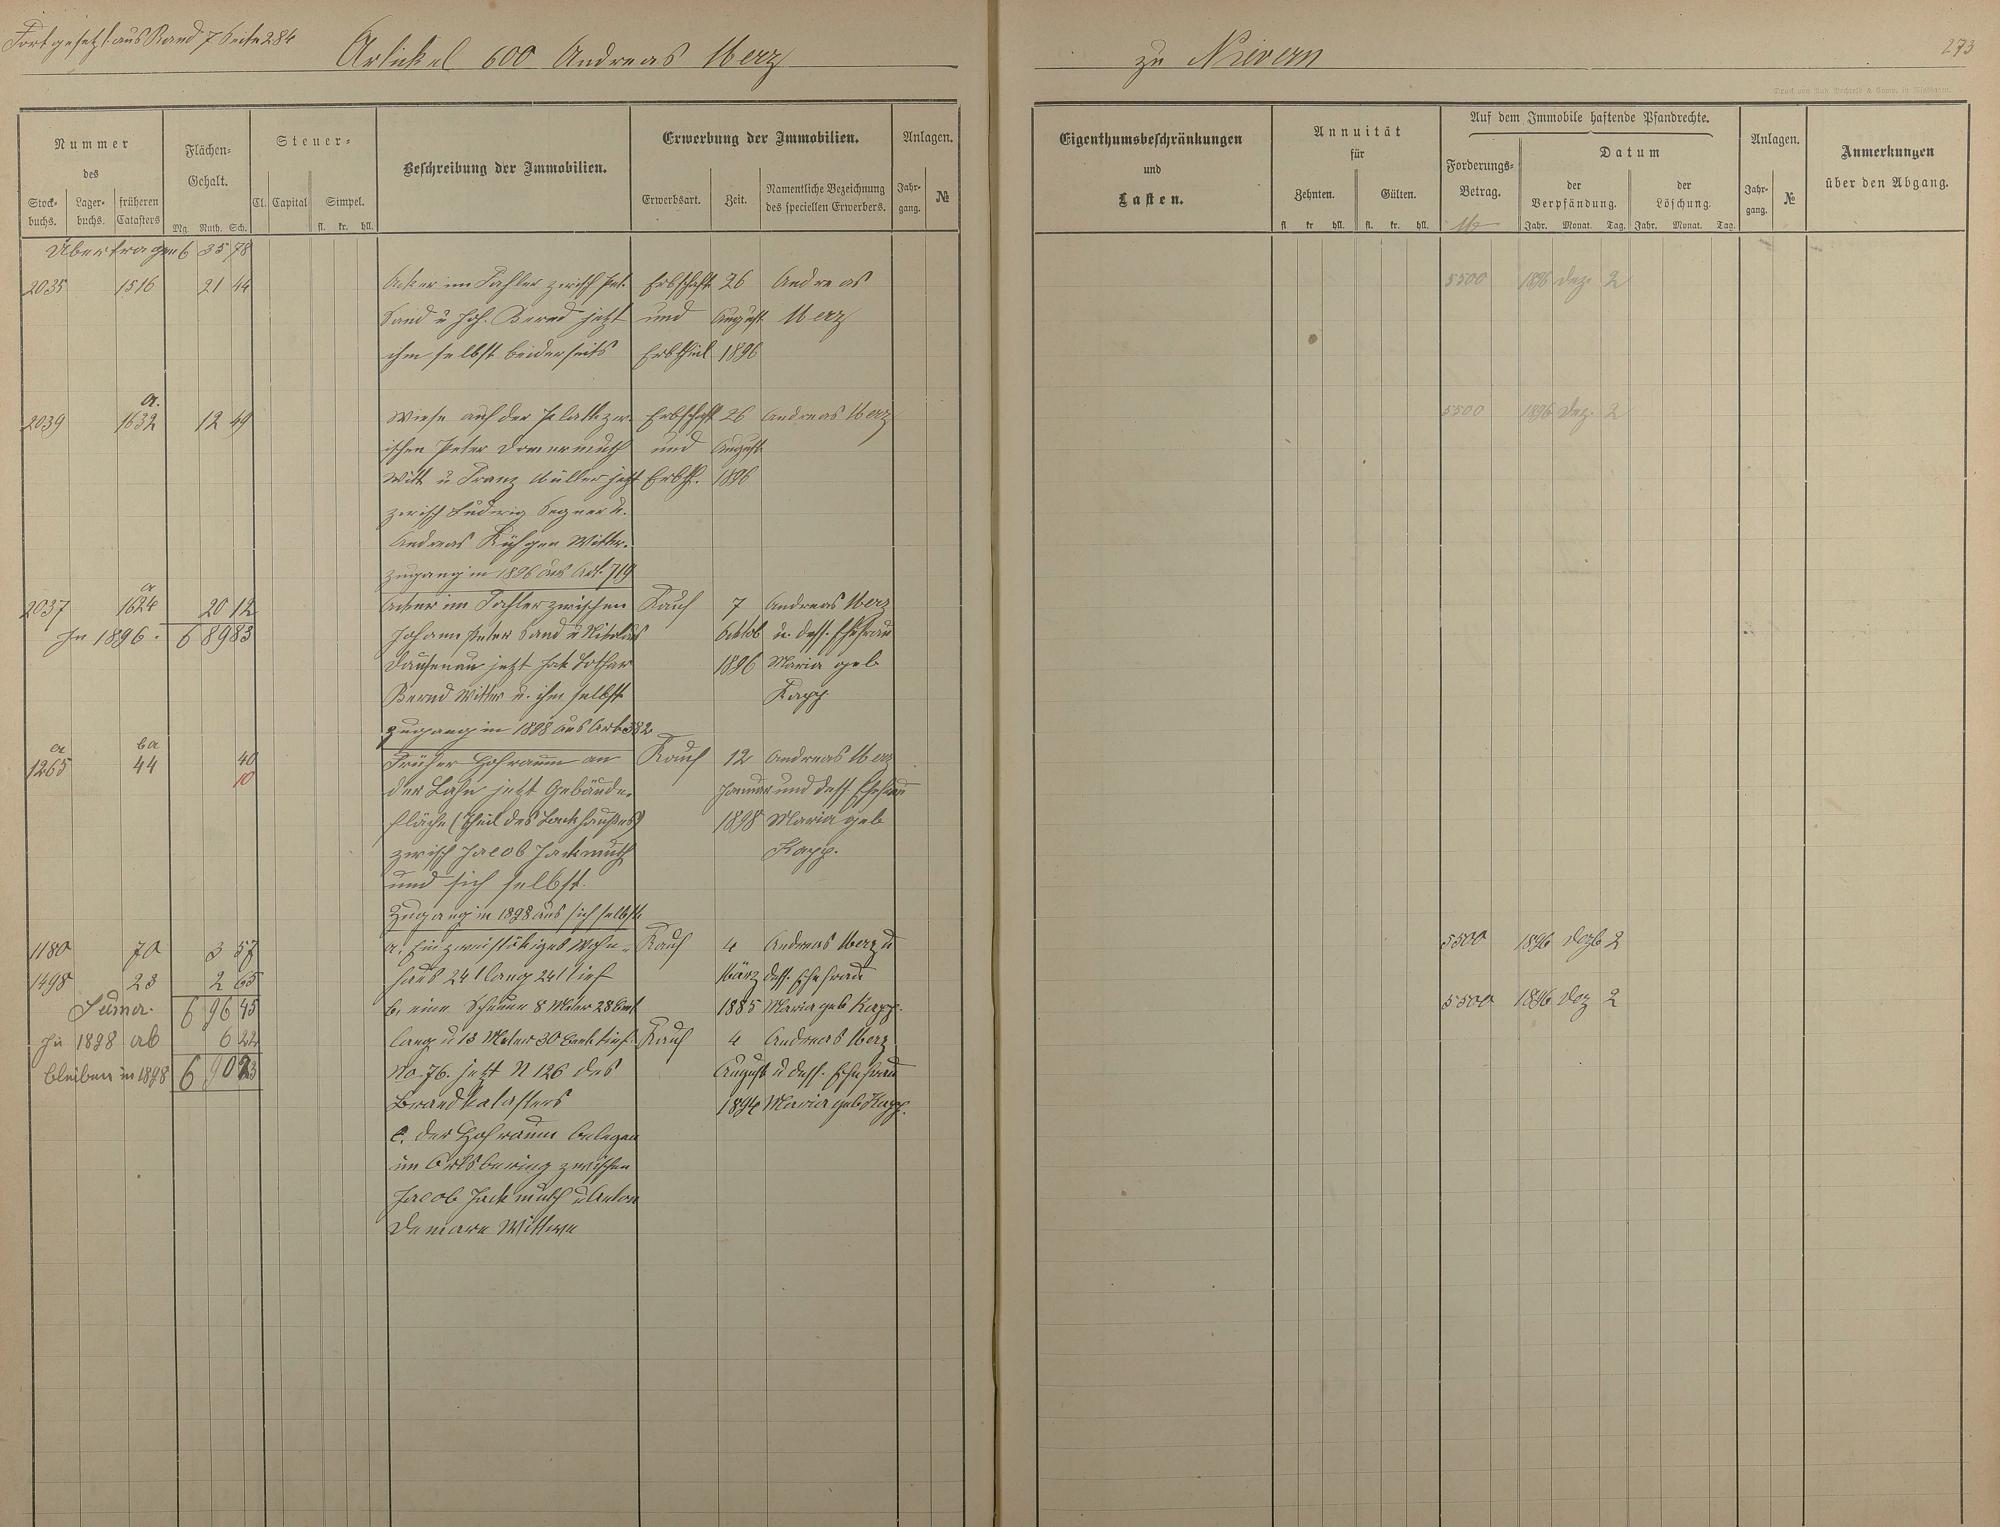 Fortgesetzt aus Band 7 Seite 284
Artikel 600 Andreas Merz
zu Nievern
273
Nummer
des
Stock-
buchs.
Lager-
buchs.
früheren
Catasters
Flächen-
Gehalt.
Mg. Ruth. Sch.
Steuer-
Cl. Capital Simpel.
fl. kr. hll.
Beschreibung der Immobilien.
Erwerbung der Immobilien.
Erwerbsart. Zeit.
Namentliche Bezeichnung
des speciellen Erwerbers.
Anlagen.
Jahr-
gang.
№
Eigenthumsbeschränkungen
und
Lasten.
Annuität
für
Zehnten. Gülten.
fl kr hll. fl. kr. hll.
Auf dem Immobile haftende Pfandrechte.
Forderungs-
Betrag.
M
Datum
der
Verpfändung.
der
Löschung.
Jahr. Monat. Tag. Jahr. Monat. Tag.
Anlagen.
Jahr-
gang.
№
Anmerkungen
über den Abgang.
Übertragen 6 35 78
2035 1516 21 44 Acker im Fahler zwisch Pet. Erbschaft 26 Andreas 5500 1896 Dez. 2
Sand u Joh. Bernd jetzt und August Merz
ihm selbst beiderseits Erbtheil 1896
a.
2039 1632 12 49 Wiese auf der zw- Erbschaft 26 Andreas Merz 5500 1896 Dez. 2
ischen Peter Domermuth und August
Witt u Franz Müller jetzt Erbth. 1896
zwisch Ludwig Segner u.
Andreas Witter.
Zugang in 1896 aus Art. 719
a
2037 1624 20 12 Acker im Fahler zwischen Kauf 7 Andreas Merz
In 1896. 6 89 83 Johann Peter Sand u Nikolaus Octob u. dess. Ehefrau
Dausenau jetzt Jak Lothar 1896 Maria geb
Bernd Witter u. ihm selbst Kapp
Zugang in 1898 aus Art 382
a ba
1265 44 40 Früher Hofraum an Kauf 12 Andreas Merz
10 der Lahn jetzt Gebäude- Januar und dess Ehefrau
fläche (Theil des Backhauses) 1898 Maria geb
zwisch Jacob Jackmuth Kapp.
und sich selbst.
Zugang in 1898 aus sich selbst
1180 70 3 57 a. Ein zweistökiges Wohn- Kauf 4 Andreas Merz u 5500 1896 Dezb 2
1498 23 2 65 haus 24 l lang 24 l tief März dess. Ehefrau
Suma. 6 96 45 b. eine Scheuer 8 Meter 28 Cent 1885 Maria geb Kapp. 5500 1896 Dez 2
In 1898 ab 6 22 lang u 13 Meter 30 Cent tief. Kauf 4 Andreas Merz
bleiben in 1898 6 90 23 No. 76. jetzt N 126 des August u dess. Ehefrau
Brandkatasters 1894 Maria geb Kapp.
c. der Hofraum belegen
im Ortsbering zwischen
Jacob Jackmuth u Anton
Demare Wittwe